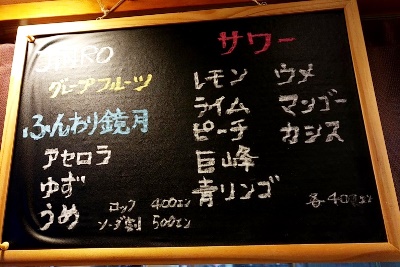 グレープフルーツ
ふんわり鏡月
アセロラ
ゆず
うめ
ロック 400エン
ソーダ割 500エン
サワー
レモン ウメ
ライム マンゴー
ピーチ カシス
巨峰
青リンゴ
各400エン